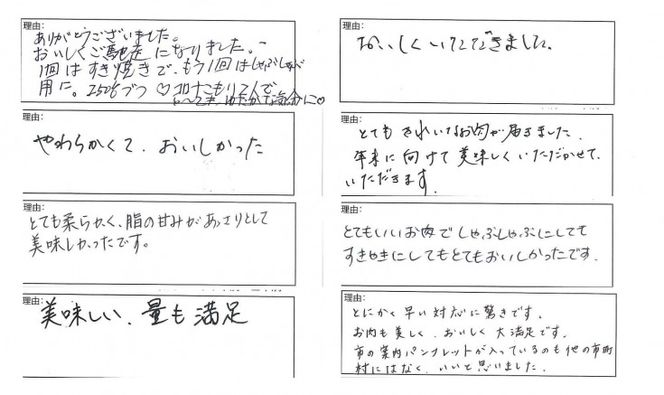 理由:
ありがとうございました。
おいしくご馳走になりました。
1回はすき焼きで、もう1回はしゃぶしゃぶ
用に。250gづつ♡コロナこもりて人で
ゆたかな気分に♡
理由:
やわらかくて、おいしかった
理由:
とても柔らかく、脂の甘みがあっさりとして
美味しかったです。
理由:
美味しい、量も満足
理由:
おいしくいただきました。
理由:
とてもきれいなお肉が届きました。
年末に向けて美味しくいただかせて
いただきます。
理由:
とてもいいお肉でしゃぶしゃぶにしても
すきやきにしてもとてもおいしかったです。
理由:
とにかく早い対応に驚きです。
お肉も美しく、おいしく大満足です。
市の案内パンフレットが入っているのも他の市町
村にはなく、いいと思いました。